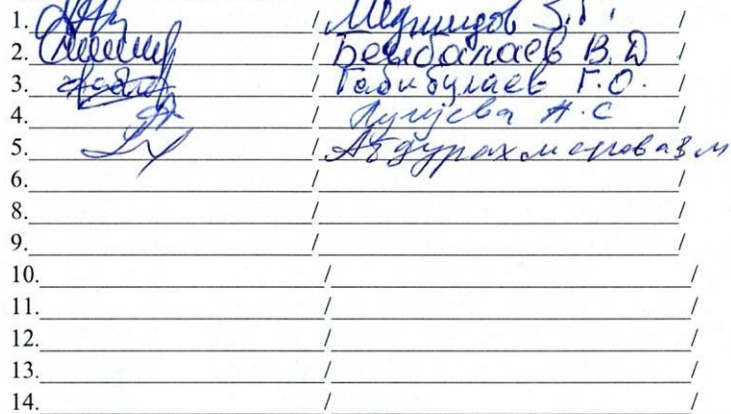 1. / Меджидов З.Г. /
2. / Бейбалаев В.Д
3. / Габибулаев Г.О. /
4. / А.С /
5. / Абдурахманова З М
6. / /
8. / /
9. / /
10. / /
11. / /
12. / /
13. / /
14. / /